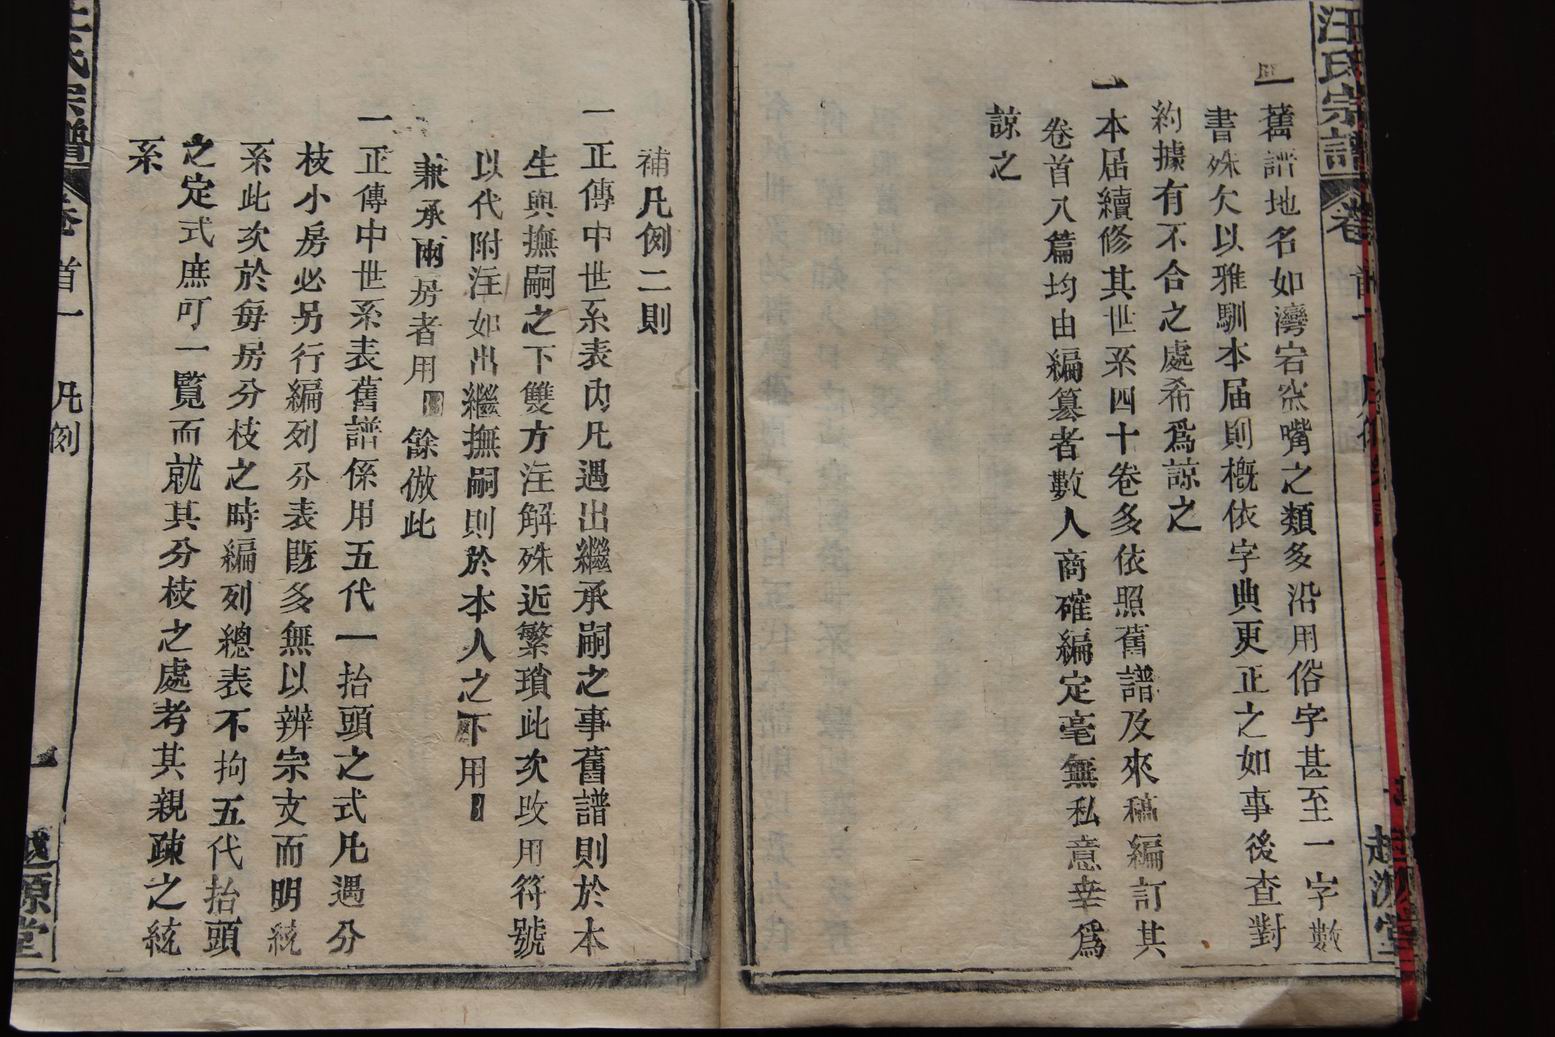 汪氏宗譜
卷
一舊譜地名如灣宕窯嘴之類多沿用俗字甚至一字數
書殊欠以雅馴本届則概依字典更正之如事後查對
約據有不合之處希爲諒之
一本届續修其世系四十卷多依照舊譜及來稿編訂其
卷首八篇均由編篡者數人商確編定毫無私意幸爲
諒之
補凡例二則
一正傳中世系表內凡遇出繼承嗣之事舊譜則於本
生與撫嗣之下雙方注解殊近繁瑣此次改用符號
以代附注如出繼撫嗣則於本人之下用
兼承兩房者用 餘倣此
一正傳中世系表舊譜係用五代一抬頭之式凡遇分
枝小房必另行編列分表旣多無以辨宗支而明統
系此次於每房分枝之時編列總表不拘五代抬頭
之定式庶可一覽而就其分枝之處考其親疎之統
系
氏宗譜
卷首一 凡例
一
越源堂